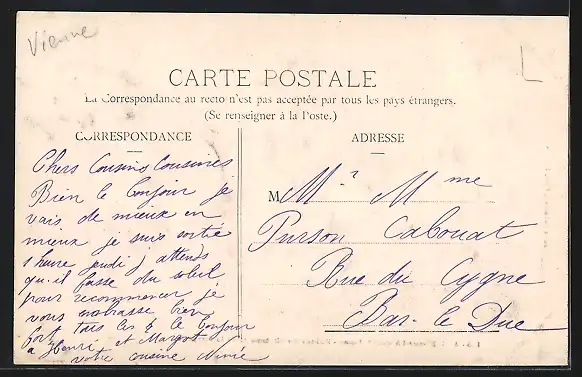 Vienne
CARTE POSTALE
La Correspondance au recto n'est pas acceptée par tous les pays étrangers.
(Se renseigner à la Poste.)
CORRESPONDANCE
ADRESSE
Chers Cousins Cousines
Bien le bonjour je
vais de mieux en
mieux je suis sortie
1 heure jeudi j attends
qu-il fasse du soleil
pour recommencer je
vous embrasse bien
fort tous les 2 le bonjour
a Henri et Margot
votre cousine Ninie
M Mr Mme
Purson Cabouat
Rue du Cygne
Bar-le Duc